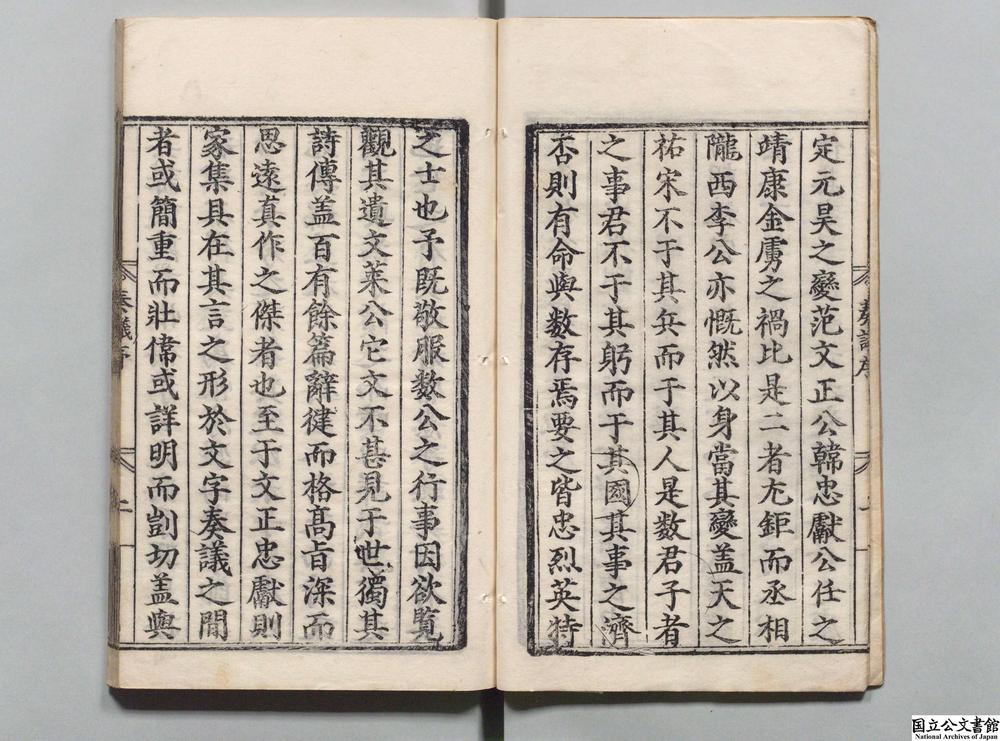 定元昊之變范文正公韓忠獻公任之
靖康金虜之禍比是二者尤鉅而丞相
隴西李公亦慨然以身當其變盖天之
祐宋不于其兵而于其人是数君子者
之事君不于其躬而于其國其事之濟
否則有命與数存焉要之皆忠烈英特
之士也予既敬服数公之行事因欲覧
觀其遺文萊公它文不甚見于世獨其
詩傳盖百有餘篇辭健而格髙旨深而
思逺真作之傑者也至于文正忠獻則
家集具在其言之形於文字奏議之間
者或簡重而壮偉或詳明而剴切盖與
奏議序
一
奏議序
二
国立公文書館
National Archives of Japan